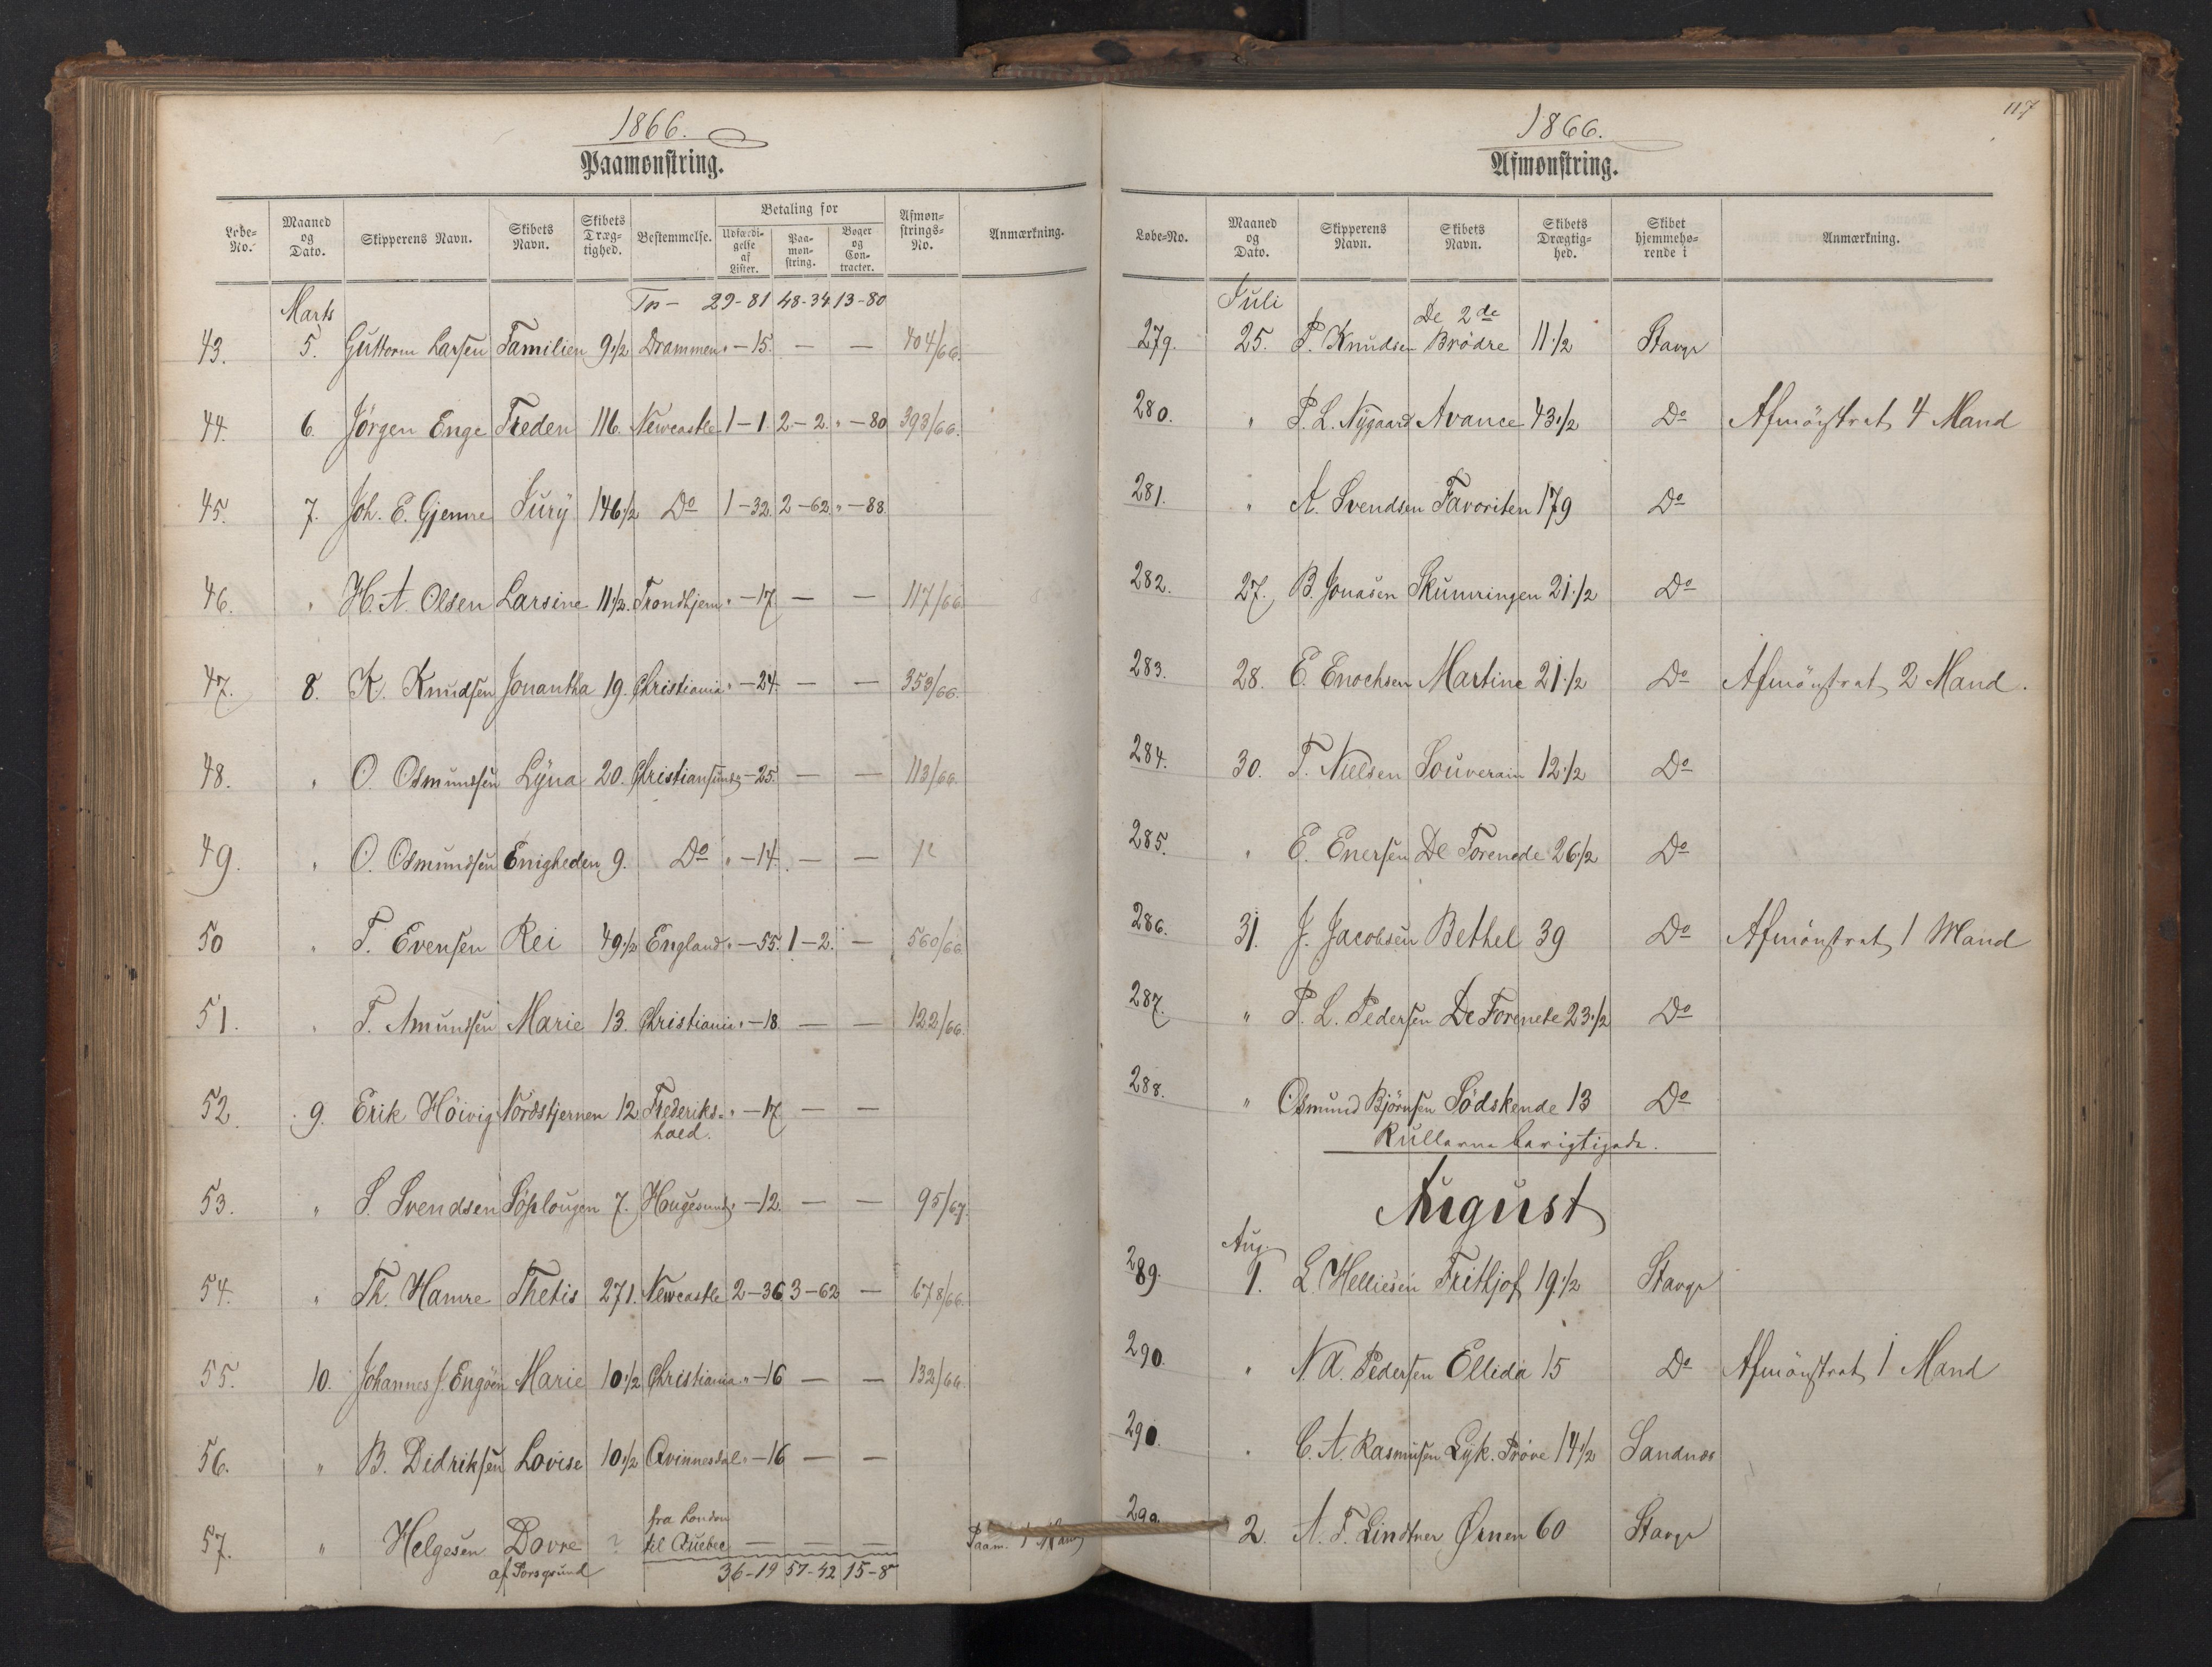 1866.
Paamønstring.
Løbe-No. Maaned og Dato. Skipperens Navn. Skibets Navn. Skibets Dræg-tighed. Bestemmelse. Betaling for Udfærdi-gelse af Lister. Paa-møn-string. Bøger og Con-tracter. Afmøn-strings-No. Anmærkning.
Marts Tp – 29-81 48-34 13-80
43. 5. Guttorm Larsen Familien 9 1/2 Drammen " – 15. — — 404/66.
44. 6. Jörgen Enge Freden 116. Newcastle 1 – 1. 2 – 2. " – 80 393/66.
45. 7. Joh. E. Gjemre Jury 146 1/2 Do 1 – 32. 2 – 62. " – 88.
46. " H. A. Olsen Larsine 11 1/2. Trondhjem " – 17 — — 117/66
47. 8. K. Knudsen Jonantha 19. Christiania " – 24. — — 353/66.
48. " O. Osmundsen Lÿna 20. Christiansund " – 25. — — 113/66.
49. " O. Osmundsen Enigheden 9. Do " – 14. — —
50 " T. Evensen Rei 49 1/2 England " – 55. 1 – 2. — 560/66
51. " T. Amundsen Marie 13. Christiania " – 18 — — 122/66.
52. 9. Erik Höivig Nordstjernen 12 Frederiks-hald. " – 17 — —
53. " S. Svendsen Söplougen 7. Hougesund " – 12. — — 95/67.
54. " Th. Hamre Thetis 271. Newcastle 2 – 36 3 – 62 — 678/66.
55. 10. Johannes J. Engöen Marie 10 1/2 Christiania " – 16 — — 132/66.
56. " B. Didriksen Lovise 10 1/2 Qvinnesdal " – 16 — —
57. " Helgesen Dovre ? fra London til Quebec — — — Paam. 1 Mand
af Porsgrund 36-19 57-42 15-8
117
1866.
Afmønstring.
Løbe-No. Maaned og Dato. Skipperens Navn. Skibets Navn. Skibets Drægtig-hed. Skibet hjemmehø-rende i Anmærkning.
Juli
279. 25. P. Knudsen De 2de Brödre 11 1/2 Stavgr
280. " P. L. Nygaard Avance 43 1/2 Do Afmönstrat 4 Mand
281. " A. Svendsen Favoriten 179 Do
282. 27. B. Jonasen Skumringen 21 1/2 Do
283. 28. E. Enochsen Martine 21 1/2 Do Afmönstrat 2 Mand.
284. 30. T. Nielsen Souverain 12 1/2 Do
285. " E. Enersen De Forenede 26 1/2 Do
286. 31. J. Jacobsen Bethel 39 Do Afmönstrat 1 Mand
287. " P. L. Pedersen De Forenede 23 1/2 Do
288. " Osmund Björnsen Södskende 13 Do
Rullerne berigtigede.
August
Aug.
289. 1. L. Helliesen Frithjof 19 1/2 Stavgr
290. " N. A. Pedersen Ellida 15 Do Afmönstrat 1 Mand
290. " C. A. Rasmusen Lyk. Pröve 14 1/2 Sandnæs
299. 2. A. F. Lindtner Ørnen 60 Stavgr